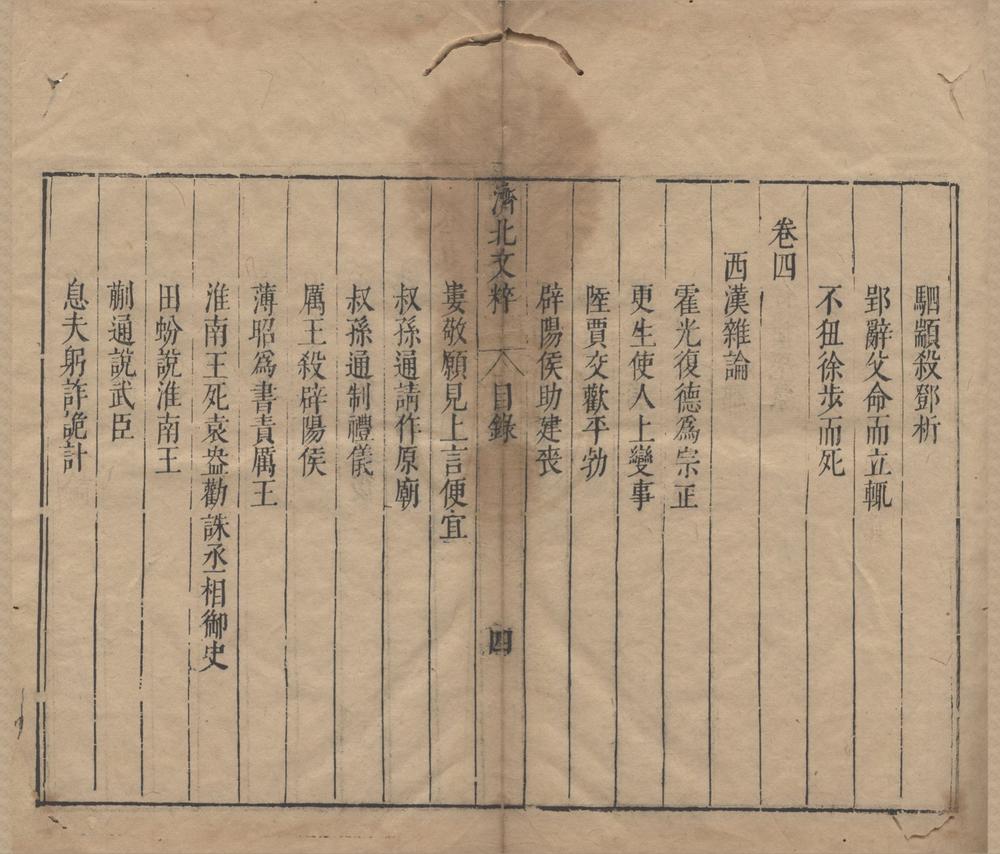 駟顓殺鄧析
郢辭父命而立輒
不狃徐步而死
卷四
西漢雜論
霍光復德爲宗正
更生使人上變事
陸賈交歡平勃
辟陽侯助建喪
濟北文粹 目錄 四
婁敬願見上言便宜
叔孫通請作原廟
叔孫通制禮儀
厲王殺辟陽侯
薄昭爲書責厲王
淮南王死袁盎勸誅丞相御史
田蚡說淮南王
蒯通說武臣
息夫躬詐詭計